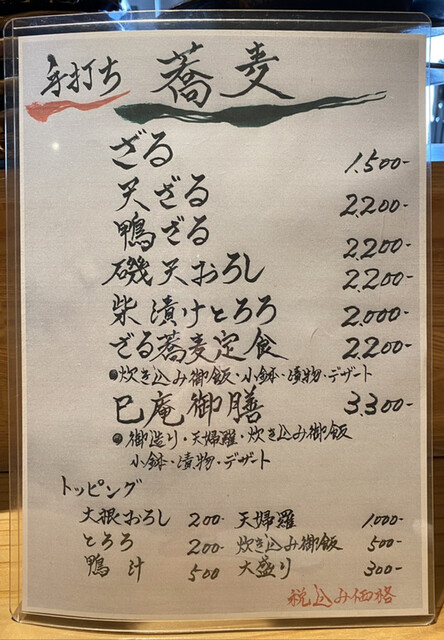 手打ち 蕎麦
ざる 1.500-
天ざる 2.200-
鴨ざる 2.200-
磯天おろし 2.200-
柴漬けとろろ 2.000-
ざる蕎麦定食 2.200-
●炊き込み御飯・小鉢・漬物・デザート
巳庵御膳 3.300-
●御造り・天婦羅・炊き込み御飯
小鉢・漬物・デザート
トッピング
大根おろし 200- 天婦羅 1.000-
とろろ 200- 炊き込み御飯 500-
鴨汁 500 大盛り 300-
税込み価格